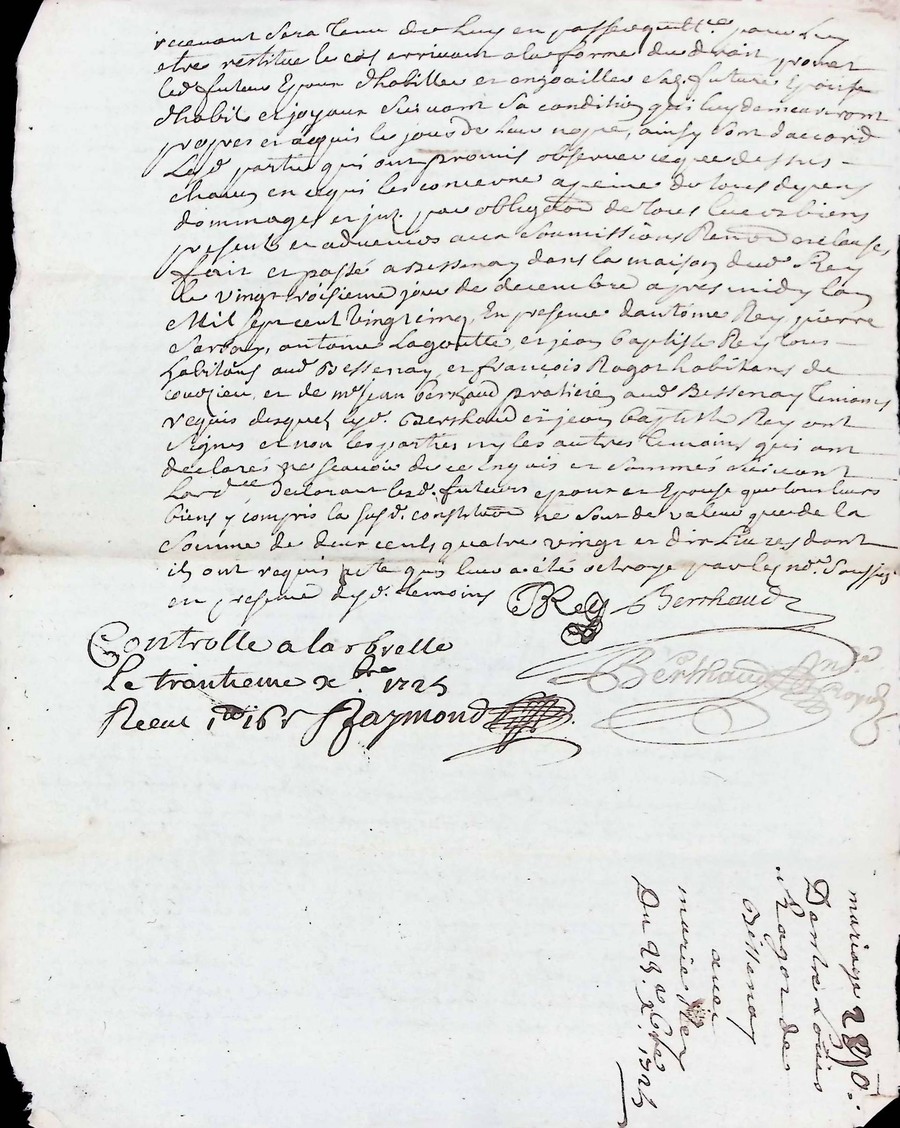 recevant sera tenu de luy en passer quitt.ce pour luy
etre restitue le cas arrivant a la forme du droit promet
led. futur Epoux d'habiller et enjoailler sad. future Epouse
d'habit et joyaux suivant sa condition qui luy demeureront
propres et acquis le jour de leur nopce, ainsy sont d'accord
Lesd. partie qui ont promis observer ce que dessus
chacun en ce qui les concerne a peine de tous depens
dommages et int. par obligaon de tous leurs biens
presents et advenirs aux soumissions Renonon clauses,
fait et passé a Bessenay dans la maison dud. Rey
le vingt troisieme jour de decembre apres midy lan
Mil sept cent vingt cinq, En presence dantoine Rey, pierre
antoine Lagoutte, et jean baptiste Rey tous
habitans aud. Bessenay, et françois Ragot habitans de
couzieu, et de me jean berthaud praticien aud. Bessenay temoins
requis desquels lesd. Berthaud et jean baptiste Rey ont
signes et non les parties ny les autres temoins qui ont
declarés ne scavoir de ce Enquis et sommés suivant
Lord.ce declarant lesd. futeurs epoux et Epouse que tous leurs
biens y compris la susd. constituon ne sont de valeur que de la
somme de deux cents quatre vingt et dix Livres dont
ils ont requis acte qui leur a été octroyé par les nore. soussigé
en presence desd. temoins JBRey Berthaud
Controlle a la rbrelle
Le trantieme xbre 1725
Receu 1tt 16s Raymond
Berthaud nre Royal
mariage 2890.
Dentre Loüis
Ragot de
Bessenay
avec
marie Rey
Du 23e xbre 1725